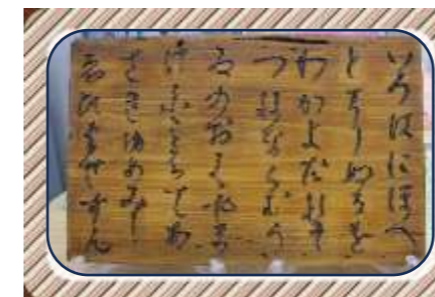 いろはにほへ
とちりぬるを
わかよたれそ
つねならむう
ゐのおくやま
けふこえてあ
さきゆめみし
ゑひもせすん